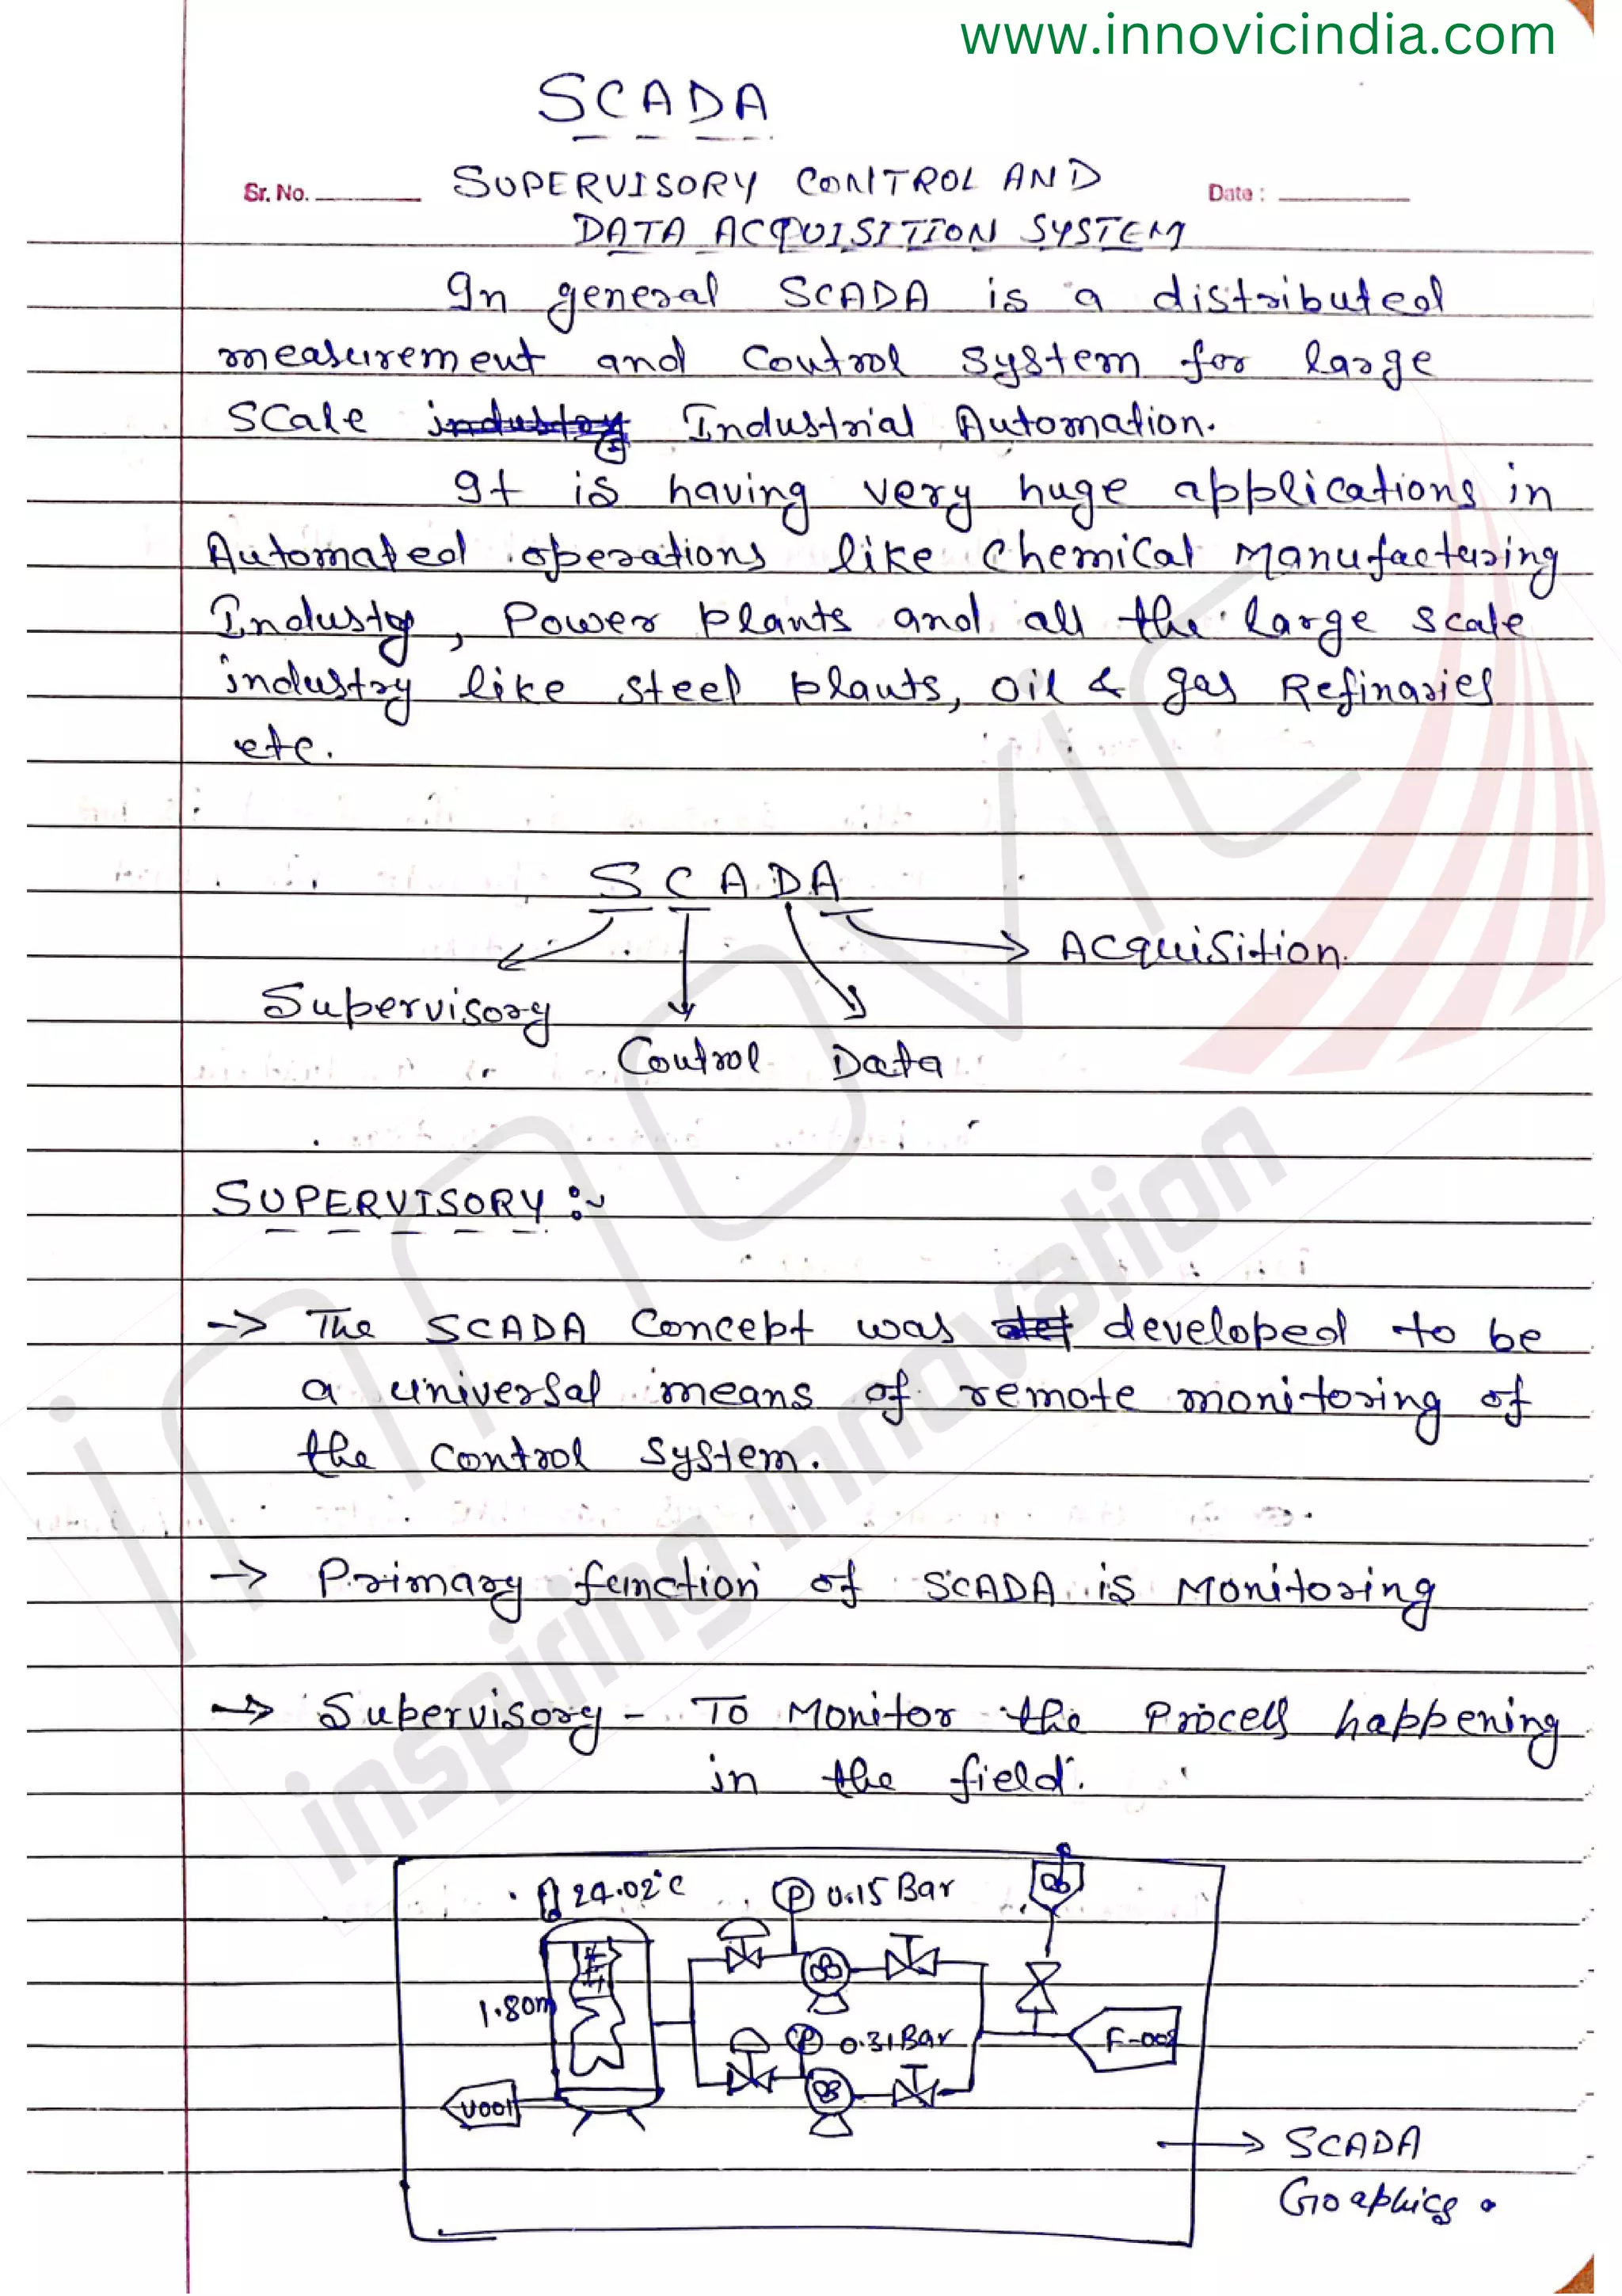 www.innovicindia.com
SCADA
Sr. No. SUPERVISORY CONTROL AND Date :
DATA ACQUISITION SYSTEM
In general SCADA is a distributed
measurement and Control System for large
Scale industry Industrial Automation.
It is having very huge applications in
Automated operations like Chemical Manufacturing
Industry, Power plants and all the large scale
industry like steel plants, oil & gas Refinaries
etc.
SCADA
Acquisition.
Supervisory
Control Data
SUPERVISORY :~
-> The SCADA Concept was developed to be
a universal means of remote monitoring of
the Control System.
-> Primary function of SCADA is Monitoring
-> Supervisory - To Monitor the Process happening
in the field.
24.02°C P 0.15 Bar
1.80m
P 0.31 Bar
V001
-> SCADA
Graphics.
innovic
inspiring innovation